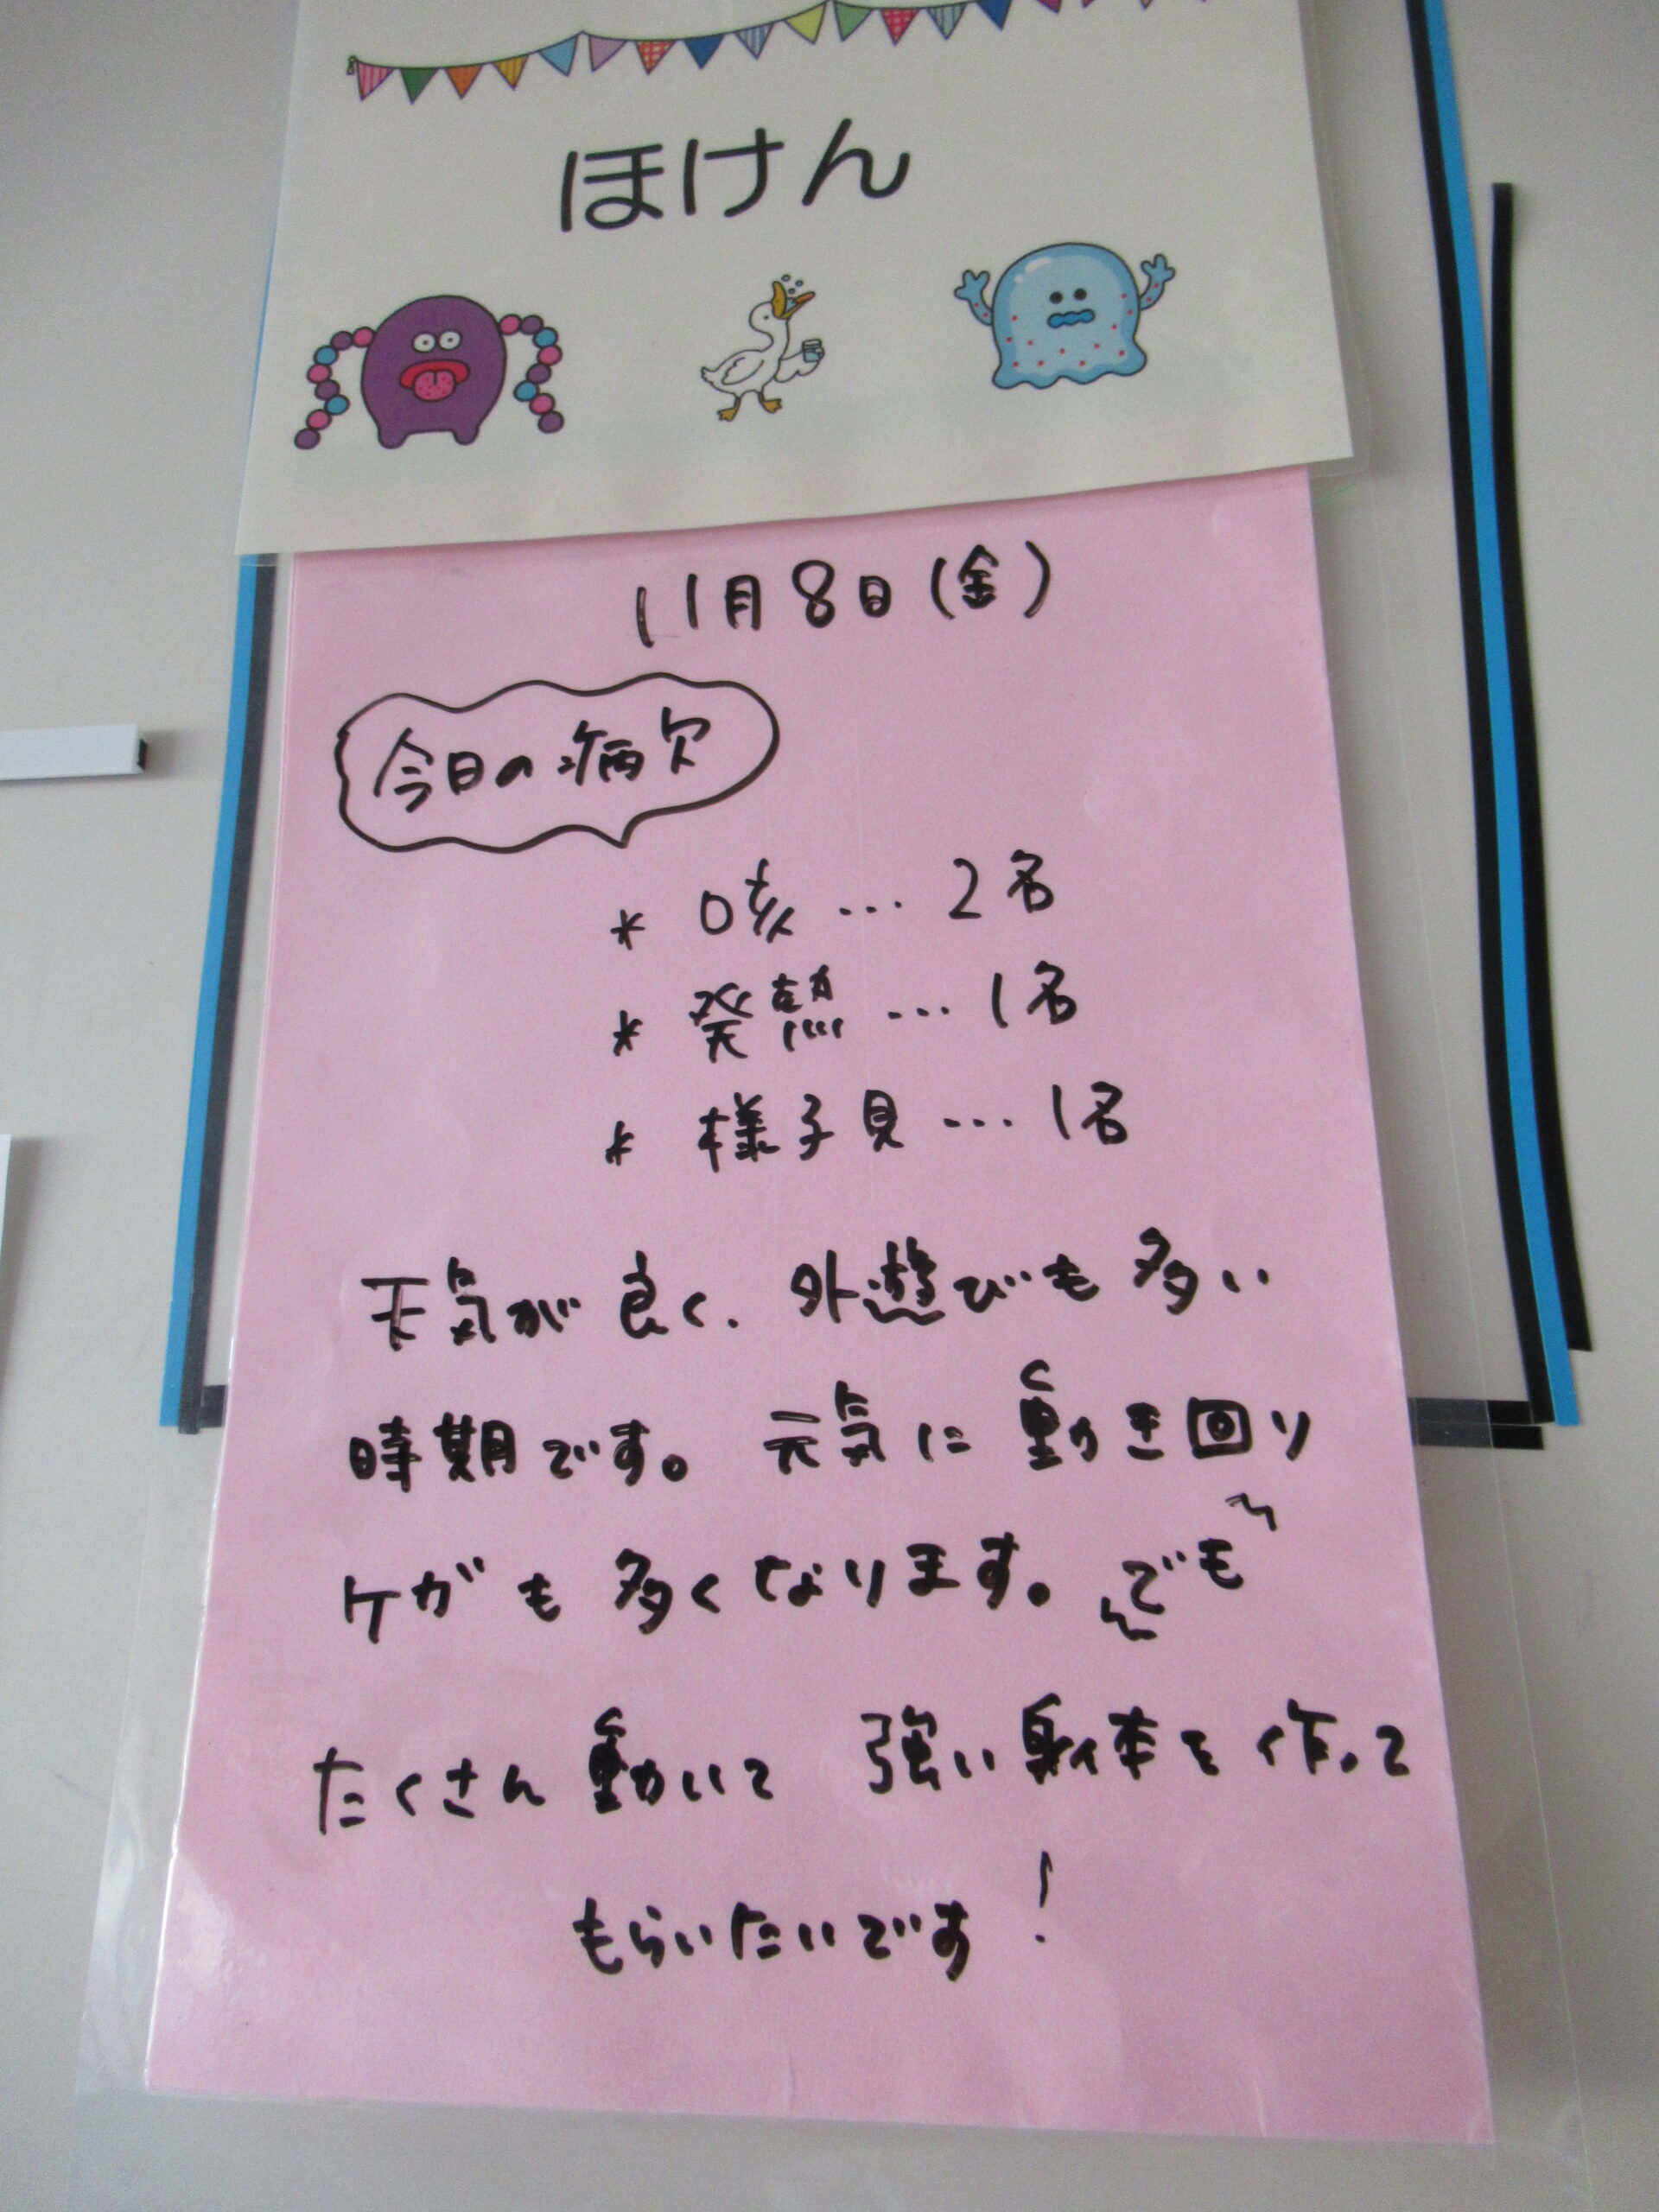 ほけん
11月8日(金)
今日の病欠
* 咳…2名
* 発熱…1名
* 様子見…1名
天気が良く、外遊びも多い
時期です。元気に動き回り
ケガも多くなります。でも
たくさん動いて 強い身体を作って
もらいたいです!